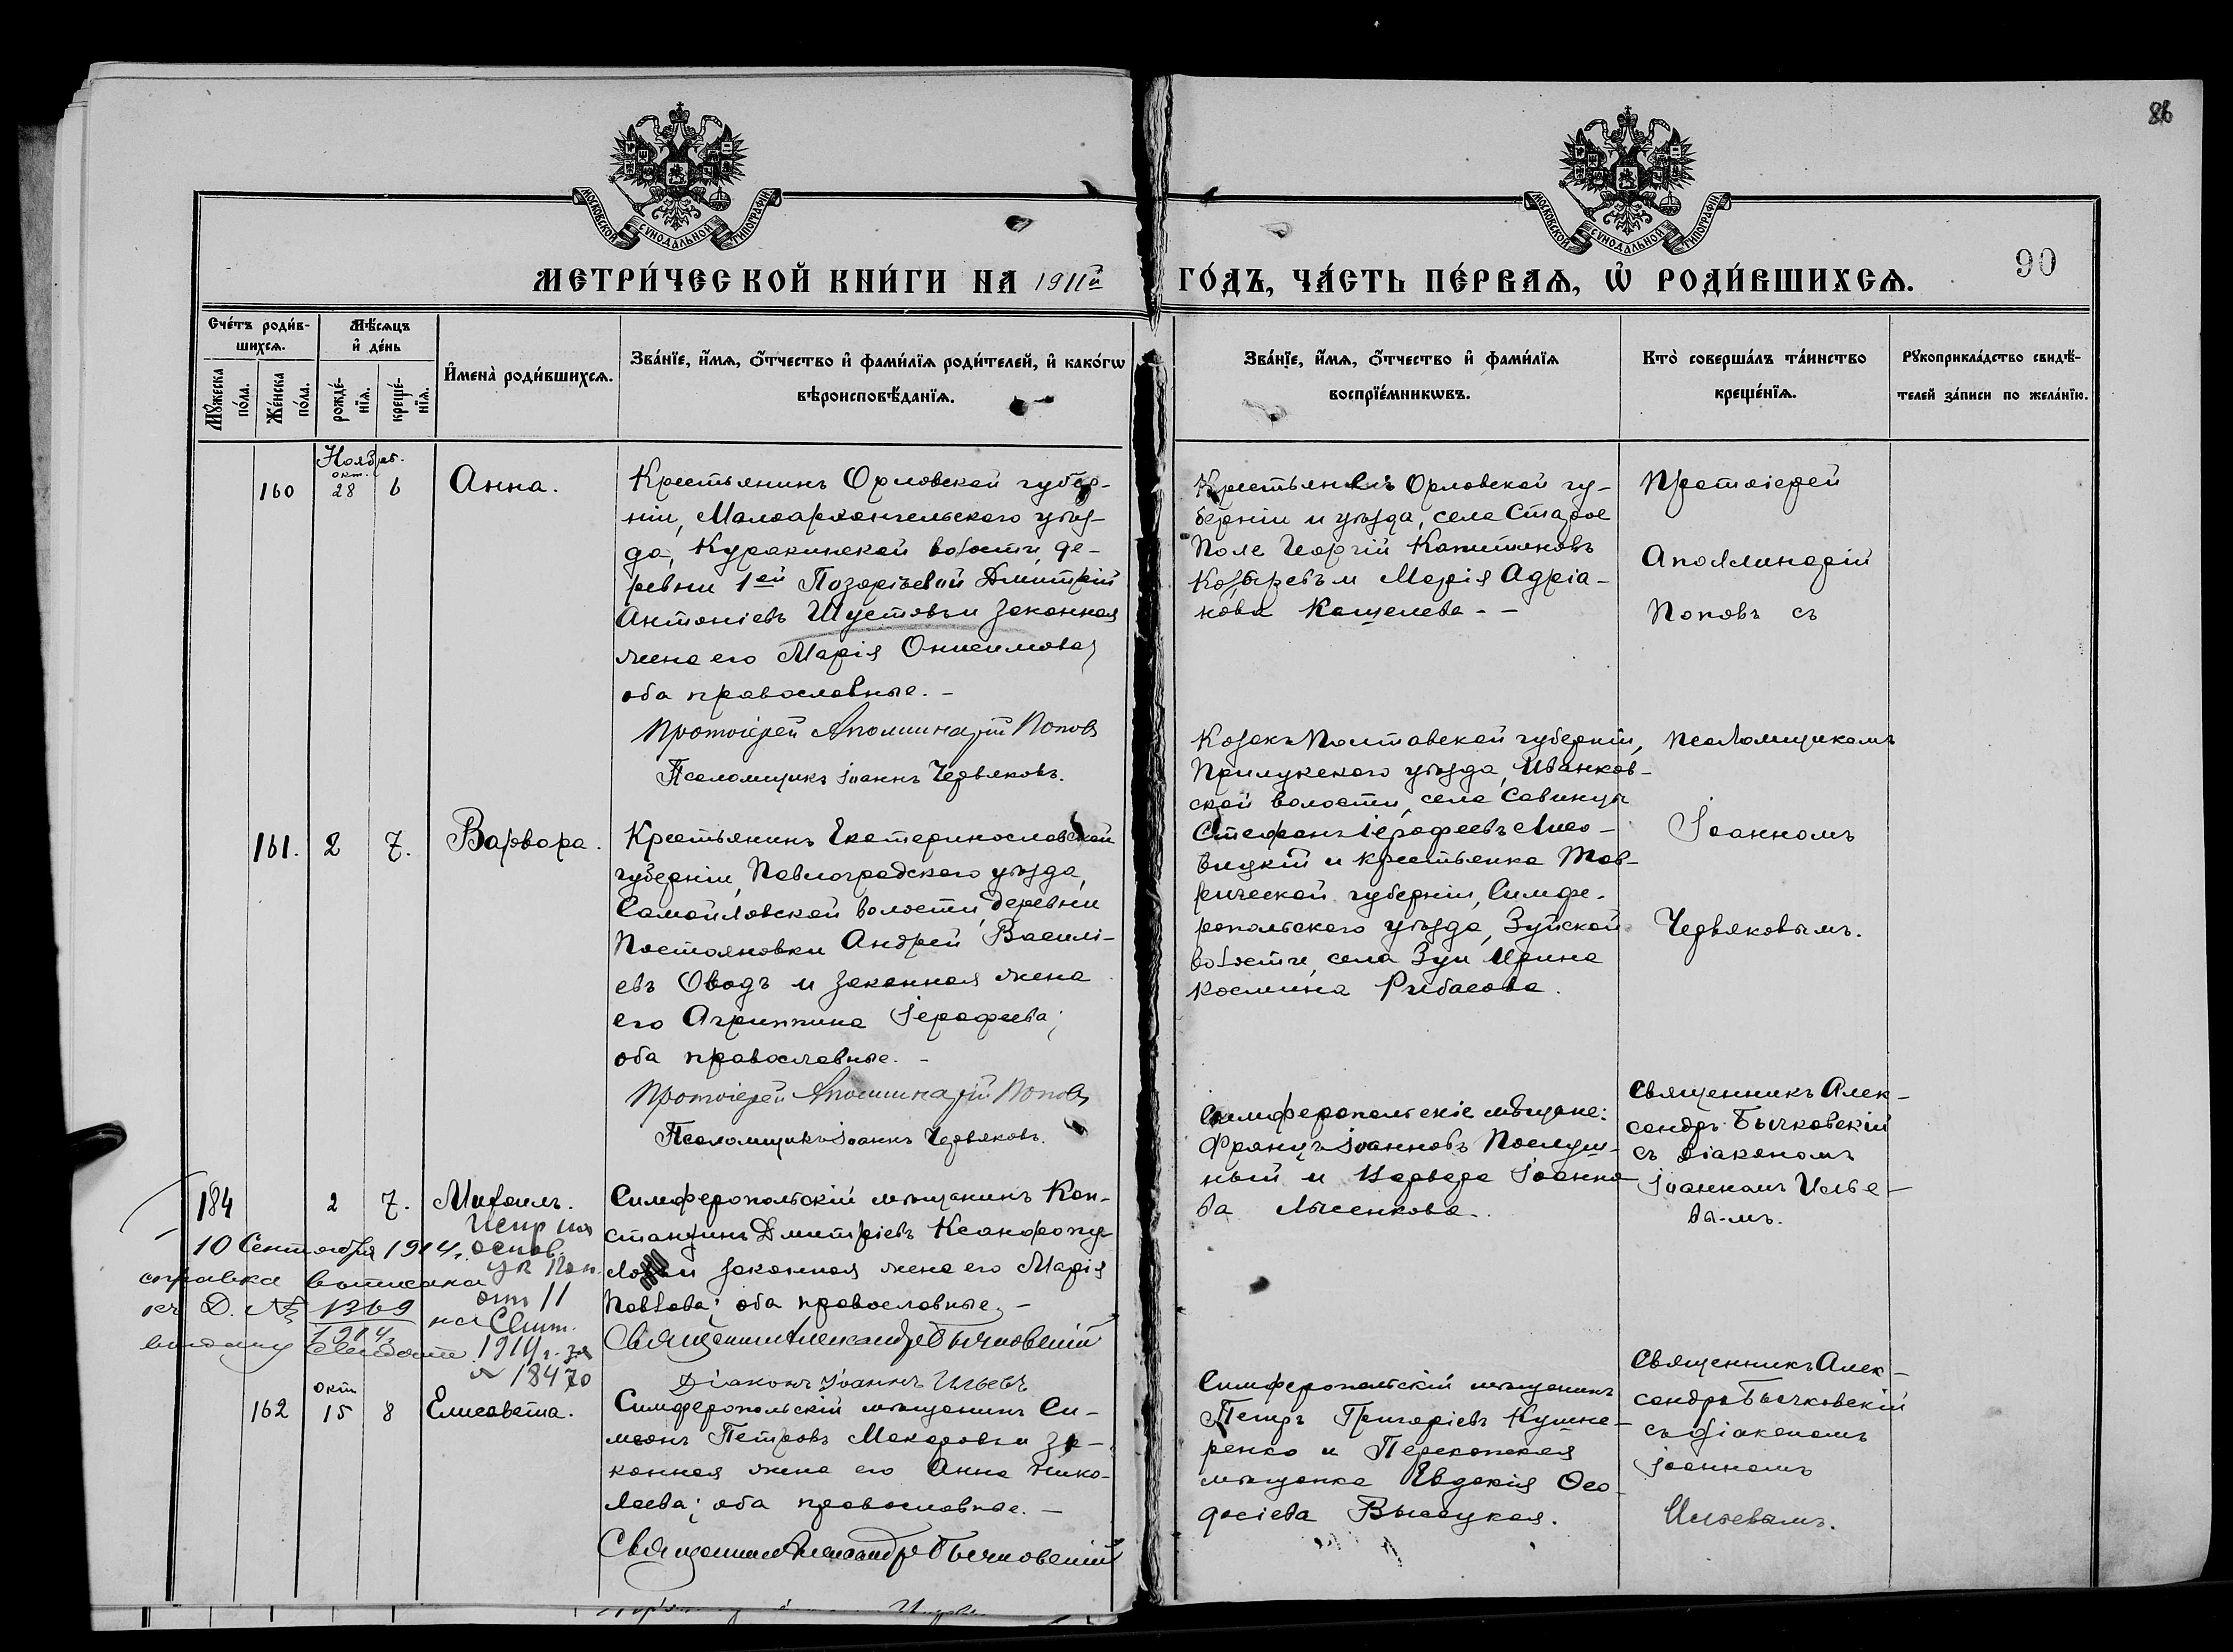 86
МОСКОВСКОЙ СѴНОДАЛЬНОЙ ТИПОГРАФІИ
МОСКОВСКОЙ СѴНОДАЛЬНОЙ ТИПОГРАФІИ
90
МЕТРИ́ЧЕСКОЙ КНИ́ГИ НА 1911й ГО́ДЪ, ЧА́СТЬ ПЕ́РВАѦ, Ѡ҆ РОДИ́ВШИХСѦ.
Сче́тъ роди́в-
шихсѧ.
Мꙋ́жеска
по́ла.
Же́нска
по́ла.
Мѣ́сѧцъ
и҆ де́нь
рожде́-
нїѧ.
креще́-
нїѧ.
И҆мена̀ роди́вшихсѧ.
Зва́нїе, и҆́мѧ, ѻ҆́тчество и҆ фами́лїѧ роди́телей, и҆ како́гѡ
вѣроисповѣ́данїѧ.
Зва́нїе, и҆́мѧ, ѻ҆́тчество и҆ фами́лїѧ
воспрїе́мникѡвъ.
Кто̀ соверша́лъ та́инство
креще́нїѧ.
Рꙋкоприкла́дство свидѣ́-
телей за́писи по жела́нїю.
Нояб.
окт.
160
28
6
Анна.
Крестьянинъ Орловской губер-
ніи, Малоархангельского уѣз-
да, Куракинской волости, де-
ревни 1ей Позаріевой Дмитрій
Антоніевъ Шустовъ и законная
жена его Марія Онисимова,
оба православные. -
Протоіерей Аполлинарій Поповъ
Псаломщикъ Іоаннъ Червяковъ.
Крестьянинъ Орловской гу-
берніи и уѣзда, села Старое
Поле Георгій Капитоновъ
Козыревъ и Марія Адріа-
нова Кащеева. -
Протоіерей
Аполлинарій
Поповъ съ
псаломщикомъ
Іоанномъ
Червяковымъ.
161.
2
7.
Варвара.
Крестьянинъ Екатеринославской
губерніи, Павлоградского уѣзда,
Самойловской волости, деревни
Постояновки Андрей Василі-
евъ Оводъ и законная жена
его Агриппина Іерофеева;
оба православные. -
Протоіерей Аполлинарій Поповъ
Псаломщикъ Іоаннъ Червяковъ.
Козакъ Полтавской губерніи,
Прилукского уѣзда, Иванков-
ской волости, села Савинцы
Стефанъ Іерофеевъ Лисо-
вицкій и крестьянка Тав-
рической губерніи, Симфе-
ропольского уѣзда, Зуйской
волости, села Зуи Ирина
Космина Рибасова.
184
2
7.
Михаилъ.
Симферопольскій мѣщанинъ Кон-
стантинъ Дмитріевъ Ксандропу-
ло и законная жена его Марія
Павлова; оба православные. -
Священникъ Александръ Бычковскій
Діаконъ Іоаннъ Ильевъ
10 Сентября 1914г.
справка
Д. № 1369
1914
отъ 11
Сент.
1914 г. за
№ 18470
Симферопольскіе мѣщане:
Францъ Іоанновъ Послуш-
ный и Варвара Іоанно-
ва Лысенкова.
Священникъ Алек-
сандръ Бычковскій
съ діакономъ
Іоанномъ Илье-
вы-мъ.
окт
162
15
8
Елисавета.
Симферопольскій мѣщанинъ Си-
меонъ Петровъ Макаровъ и за-
конная жена его Анна Нико-
лаева; оба православные. -
Священникъ Александръ Бычковскій
Симферопольскій мѣщанинъ
Петръ Григоріевъ Кушне-
ренко и Перекопская
мѣщанка Евдокія Ѳео-
досіева Высоцкая.
Священникъ Алек-
сандръ Бычковскій
съ діакономъ
Іоанномъ
Ильевымъ.